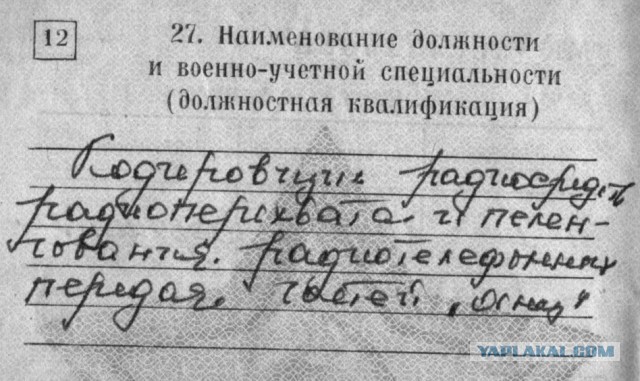 12
27. Наименование должности
и военно-учетной специальности
(должностная квалификация)
Кодировчик радиосредств
радиоперехвата и пелен-
гования радиотелефонных
передач. частей „Осназ"
YAPLAKAL.COM